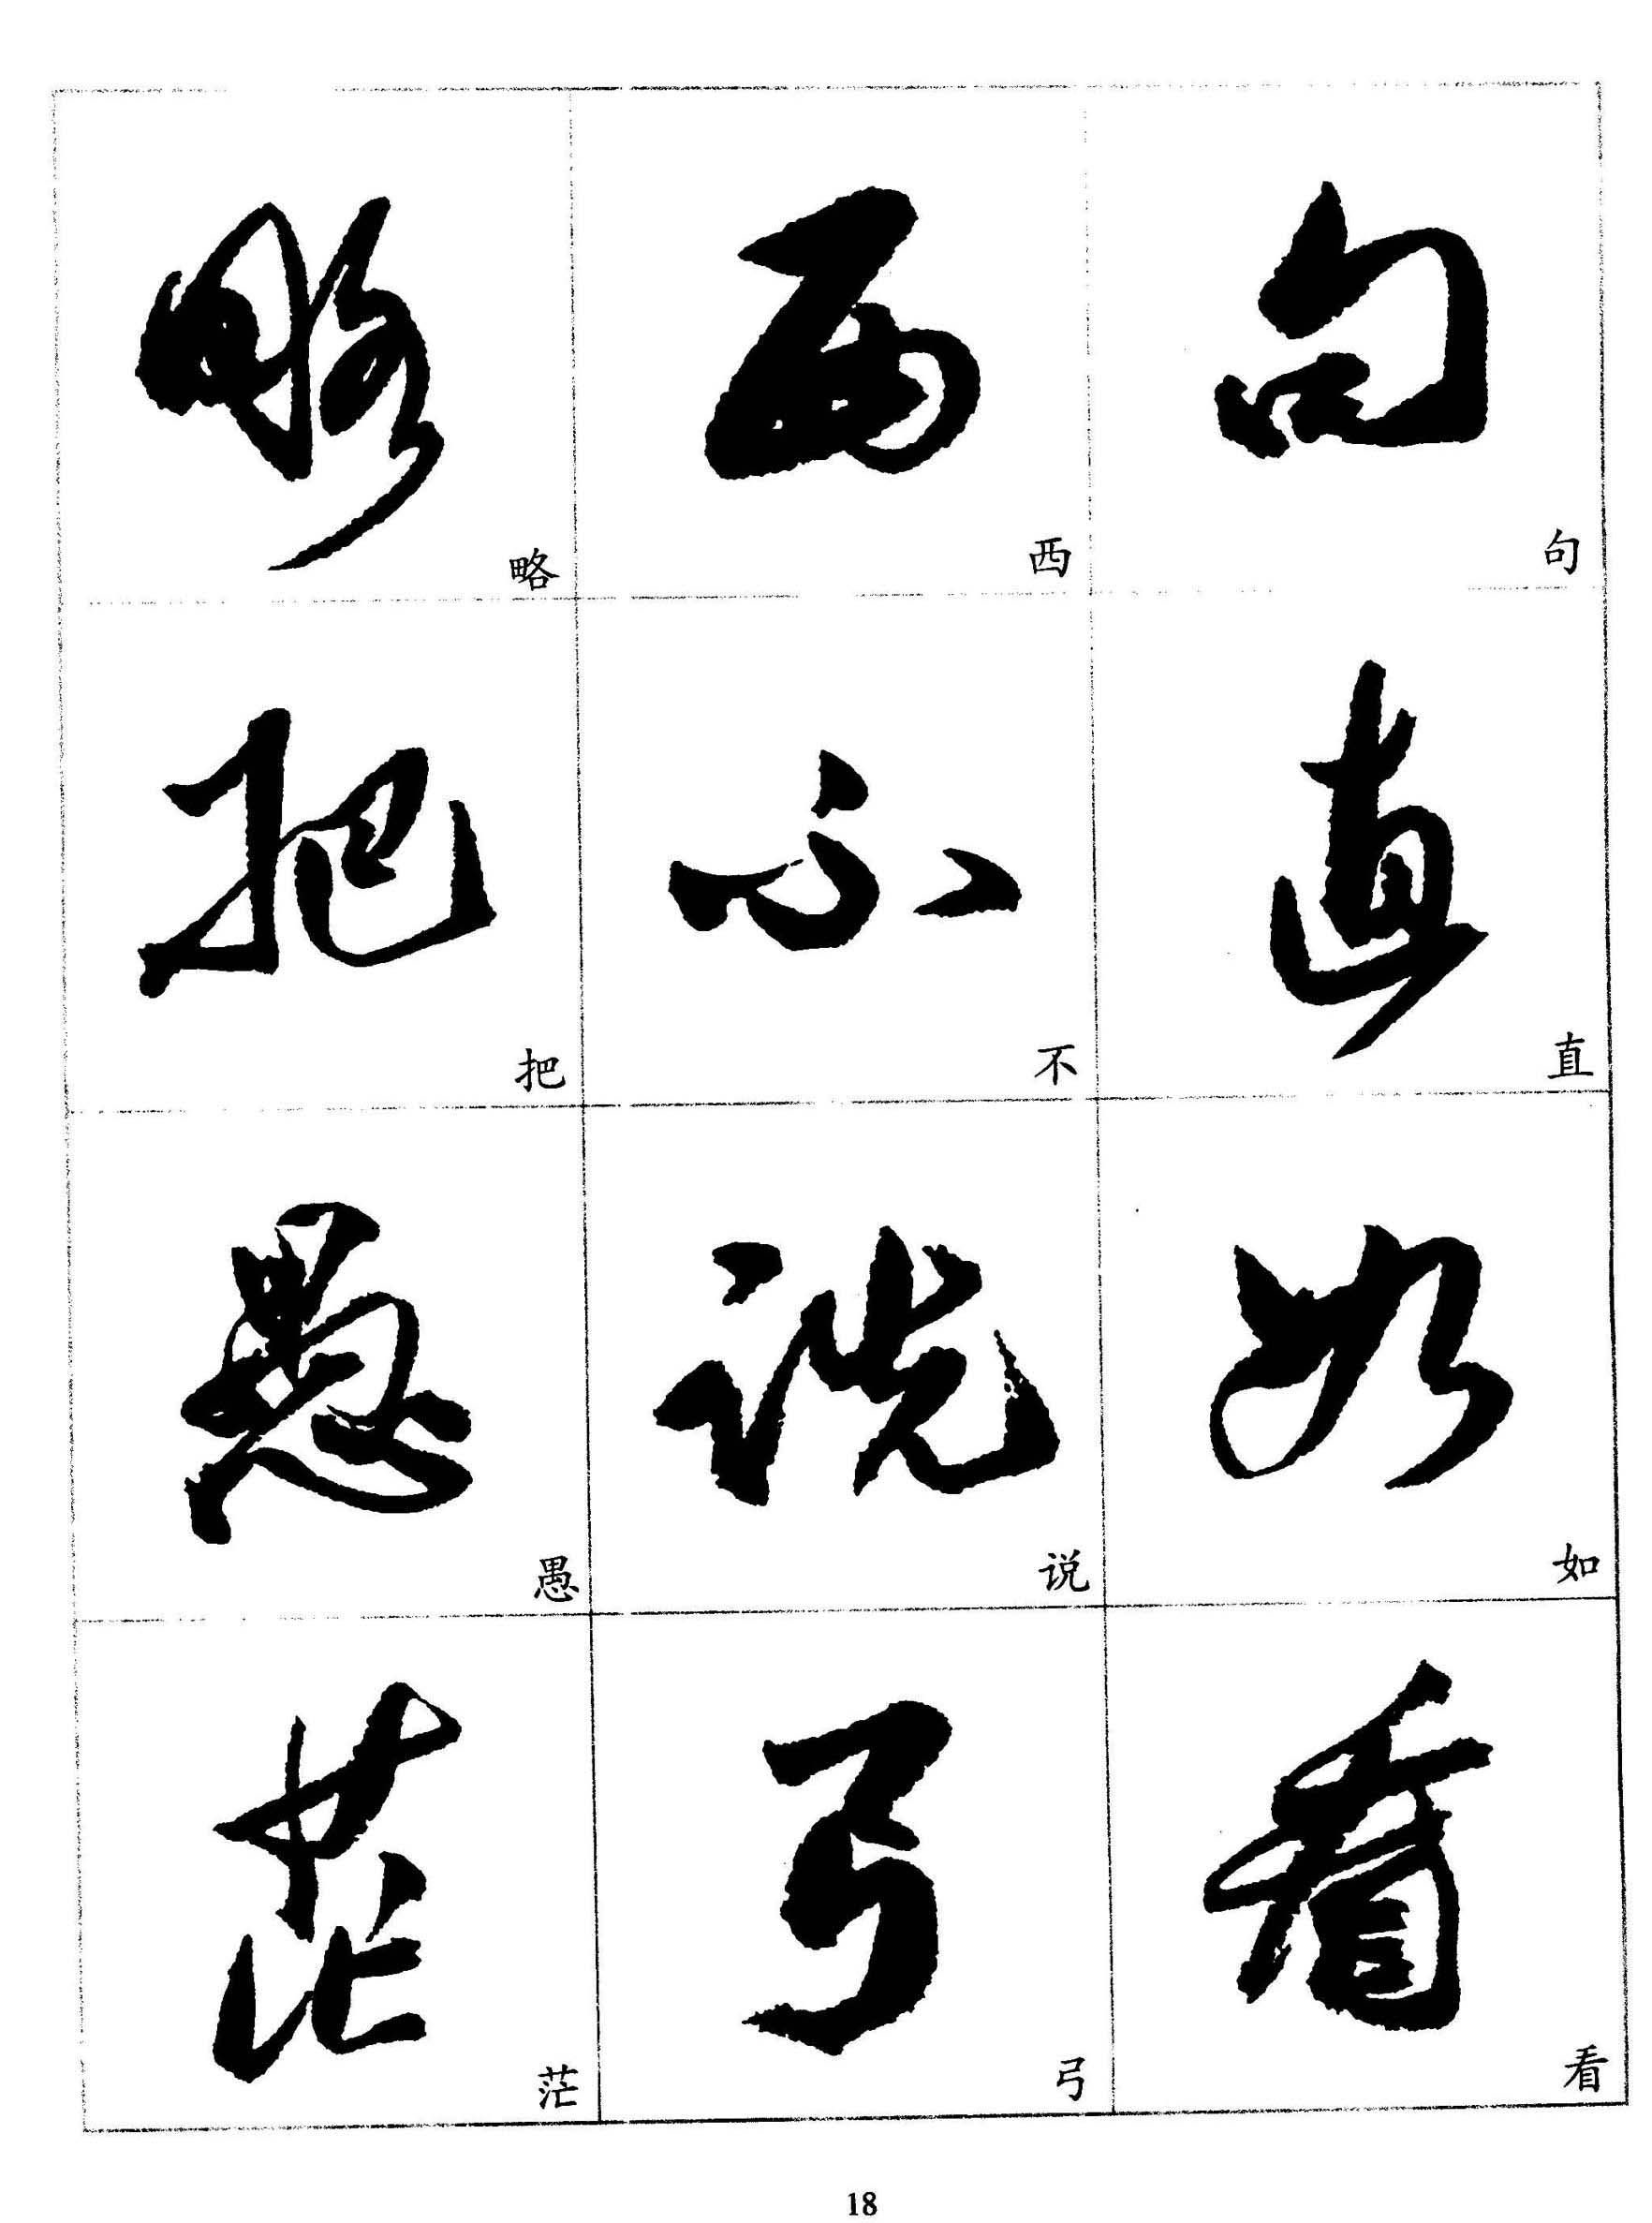 句 西 略
直 不 把
如 说 愚
看 弓 茫
句直如看
西不说弓
略把愚茫
18